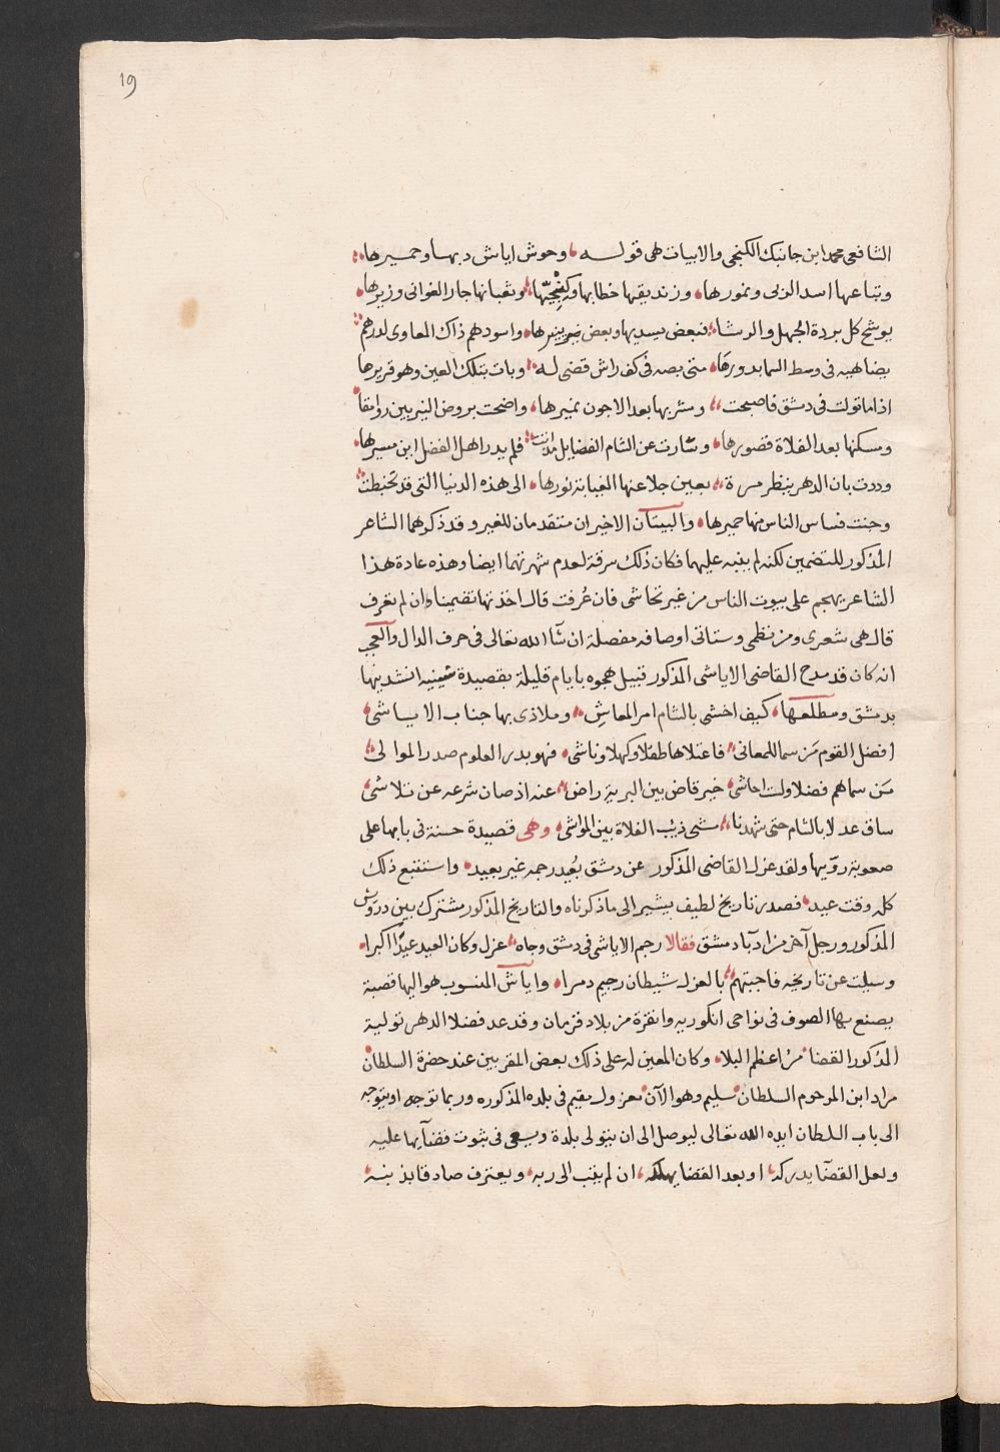 19
الشافعي محمد ابن جانبك الكنجي والابيات هي قولــه وحوش اياش دبها وحميرها
وتباعها اسد الزبى ونمورها وزنديقها خطابها وثعبانها جار الغوانى وزيرها
يوشح كل بردة الجهل والرشا فبعض يسديها وبعض ينيرها واسودهم ذاك المعاوى لدرهم
يضاهيه فى وسط السما بدورها متى بصه فى كف راش قضى له وبات بتلك العين وهو قريرها
اذا ما تولت فى دمشق فاصبحت وشربها بعد الاجون نميرها واضحت بروض النيربين روامقا
ومسكنها بعد الفلاة قصورها وسارت عن الشام الفضايل مذ اتت فلم يدر اهل الفضل اين مسيرها
وددت بان الدهر ينظر مرة بعين جلا عنها الغبانة نورها الى هذه الدنيا التى قد تخبطت
وجنت فساس الناس منها حميرها والبيتان الاخيران متقدمان للغير وقد ذكرهما الشاعر
المذكور للتضمين لكنه لم ينبه عليهما فكان ذلك سرقة لعدم شهرتهما ايضا وهذه عادة هذا
الشاعر يهجم على بيوت الناس من غير تحاشى فان عُرفت قال اخذتها تضمينا وان لم تعرف
قال هى شعرى ومن نظمى وستاتى اوصافه مفصلة ان شآ الله تعالى فى حرف الدال والعجب
انه كان قد مدح القاضى الاياشى المذكور قبيل هجوه بايام قليلة بقصيدة شينيه انشدنيها
بدمشق ومطلعها كيف اخشى بالشام امر المعاش وملاذى بها جناب الاياشى
افضل القوم مَن سما للمعانى فاعتلاها طفلا وكهلا وناشى فهو بدر العلوم صدر الموالى
مَن سماهم فضلا ولست احاشى خير قاض بين البرية راض عنه اذ صان شرعه عن تلاشى
ساق عدلا بالشام حتى شهدنا مشى ذيب الفلاة بين المواشى وهى قصيدة حسنة فى بابها على
صعوبة رويها ولقد عزل القاضى المذكور عن دمشق بُعيد رجمه غير بعيد واستتبع ذلك
كله وقت عيد فصدر تاريخ لطيف يشير الى ما ذكرناه والتاريخ المذكور مشترك بين درويش
المذكور ورجل آخر من ادبآ دمشق فقالا رجم الاياشى فى دمشق وجاه عزل وكان العيد عيدًا اكبرا
وسيلت عن تاريخه فاجبتهم بالعزل شيطان رجيم دمرا واياش المنسوب هو اليها قصبة
يصنع بها الصوف فى نواحى انكوريه وانقرة من بلاد قرمان وقد عد فضلا الدهر تولية
المذكور القضا من اعظم البلا وكان المعين له على ذلك بعض المقربين عند حضرة السلطان
مراد ابن المرحوم السلطان سليم وهو الآن معزول مقيم فى بلده المذكوره وربما توجه او يتوجه
الى باب السلطان ايده الله تعالى ليوصل الى ان يتولى بلدة ويسعى فى ثبوت قضآيها عليه
ولعل القضآ يدركه او بعد القضا يهلكه ان لم ينب الى ربه ويعترف صادقا بذنبه